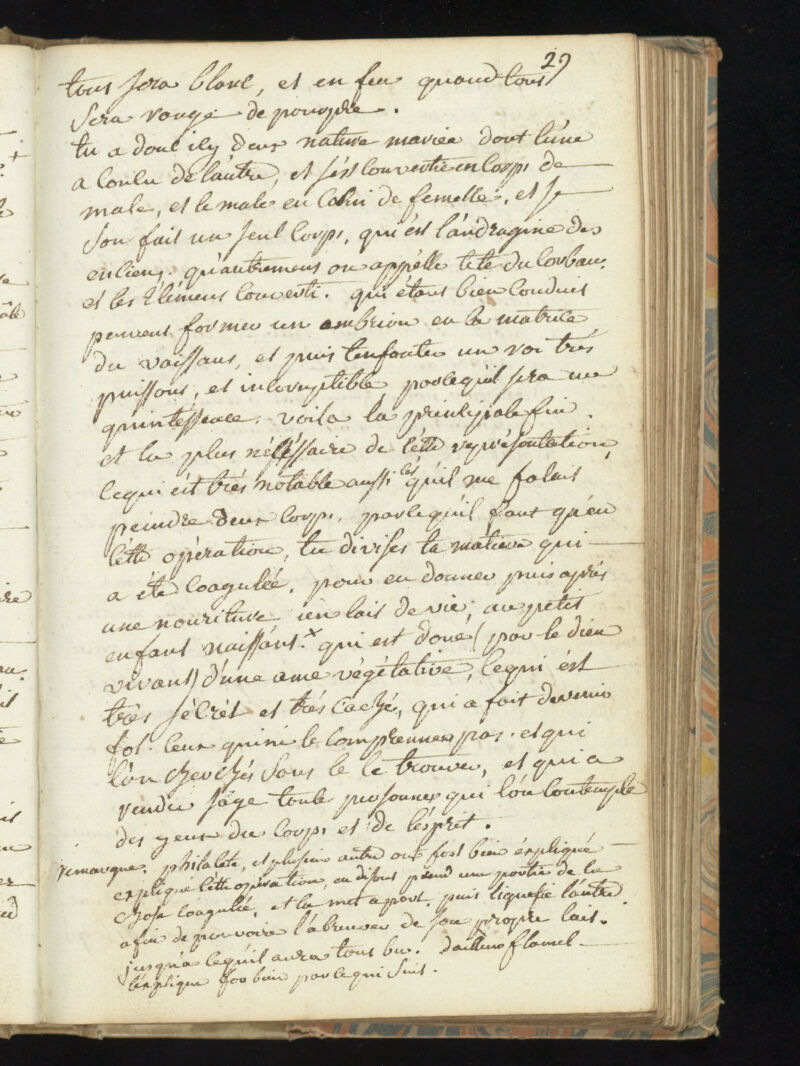 29
tout sera blanc, et en feu quand tout
sera rouge de pourpre.
tu a donc icy deux nature mariée dont l'une
a conlu de l'autre, et s'est convertie en corps de
male, et le male en celui de femelle, et se
son fait un seul corps, qui est l'andragine des
enciens. qu'autrement on appéllé tête du corbau.
et les élémens converti. qui étant bien conduit
peuvent former un embrion en la matrice
du vaissaus, et puis t'enfanter un roi très
puissant, et incoruptible parcequ'il sera une
quintéssence. voila la prinsipale fin.
et la plus nécéssaire de cétte représentation,
cequi ést trés notable aussi cés qu'il me falut
peindre deux corps, parcequ'il faut qu'en
cétte opération, tu divises ta matière qui
a été coagulée, pour en donner puis aprés
une nouriture, un lait de vie, au petit
enfant naissant.x qui est doué (par le dieu
vivant) d'une ame végétative, cequi ést
très sécrét et trés caché, qui a fait devenir
fol. ceux qui ni le comprennen pas. et qui
l'on cherchés sans le le trouver, et qui a
rendu sage toute personnes qui l'on contemplé
des yeux du corps et de l'esprit.
remarque. philaléte, et plusieur autre ont fort bien éxpliqué
explique cétte opération, en disant prend une portie de la
chose coagulée, et la met apart, puis liquefie l'autre
afin de pouvoir l'abreuver de son propre lait.
jusqu'a lequ'il aura tout bu. d'ailleur flamel
l'éxplique for bien par ce qui suit.